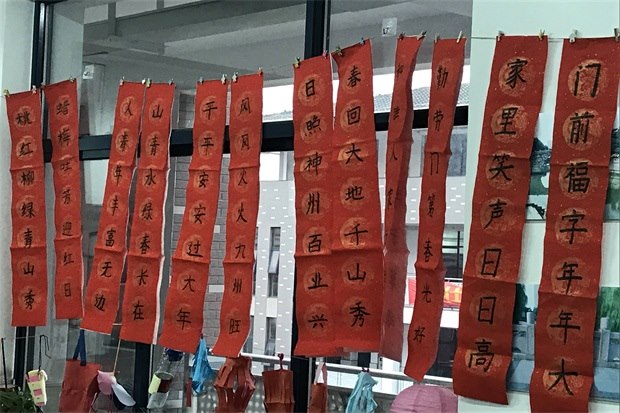 门前福字年年大
家里笑声日日高
勤劳门第春光好
人家
春回大地千山秀
日照神州百业兴
风风火火九州旺
平平安安过大年
山青水绿春长在
人寿年丰富无边
蜡梅吐芳迎红日
桃红柳绿青山秀